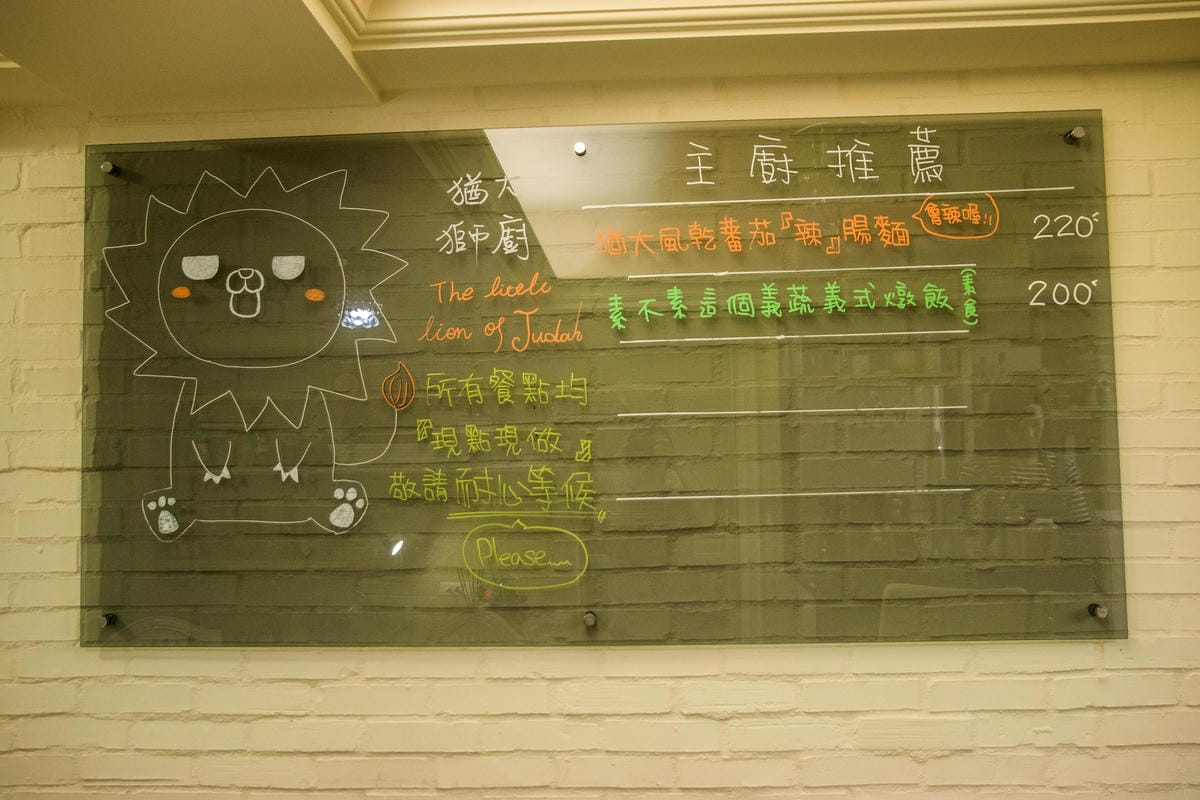 猶太
獅廚
The little
lion of Judah
所有餐點均
『現點現做』
敬請耐心等候
Please
主廚推薦
猶太風乾蕃茄『辣』腸麵 會辣喔!! 220
素不素這個義蔬義式燉飯(素食) 200